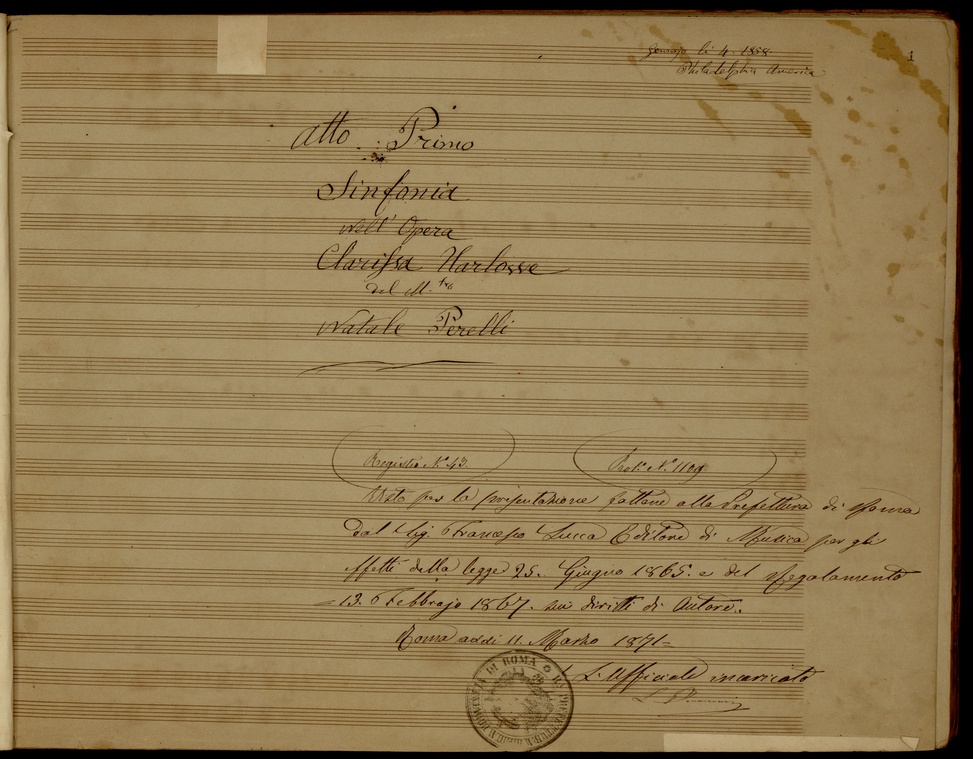 1
Gennajo li 4. 1858.
Philadelphia America
Atto Primo
Sinfonia
nell' Opera
Clarissa Harlosse
del M.tro
Natale Perelli
Registro N.° 43.
Prot.° N.° 1109
Visto per la presentazione fattane alla Prefettura di Roma
dal Sig. Francesco Lucca Editore di Musica per gli
effetti della legge 25. Giugno 1865. e del Regolamento
13. Febbrajo 1867. sui diritti di Autore.
Roma addi 11. Marzo 1871=
L'Uffiziale incaricato
R. PREFETTURA DELLA PROVINCIA DI ROMA